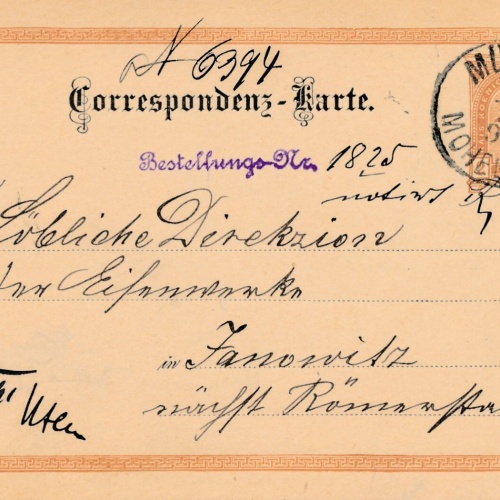 N 6394
Correspondenz-Karte.
Bestellungs-Nr. 1825
notirt
Löbliche Direkzion
der Eisenwerke
in Janowitz
nächst Römersta
MU
MOHEL